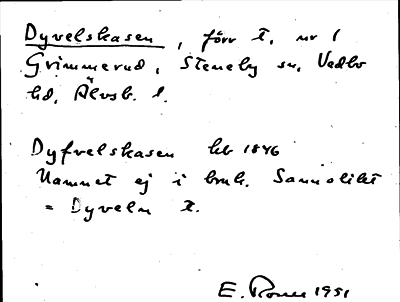 Dyvelskasen, förr t. nr 1
Grimmerud, Steneby sn, Vedbo
hd, Älvsb. l.
Dyfvelskasen hb 1846
Namnet ej i bruk. Sannolikt
= Dyveln t.
E. 1951